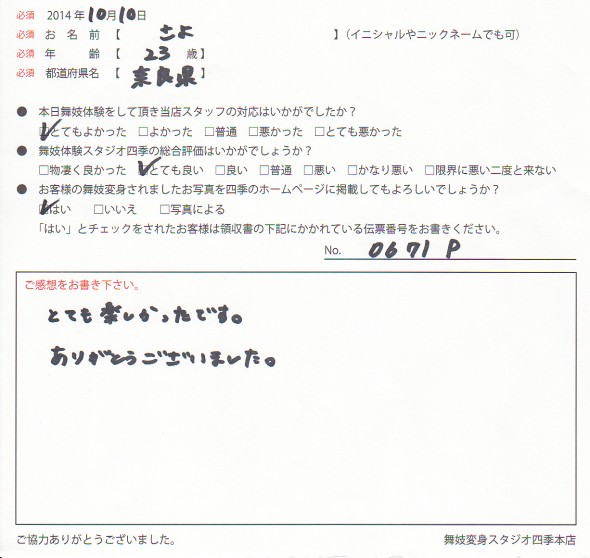 必須 2014年10月10日
必須 お名前【 さよ 】(イニシャルやニックネームでも可)
必須 年齢【 23 歳】
必須 都道府県名【 奈良県 】
● 本日舞妓体験をして頂き当店スタッフの対応はいかがでしたか?
☑とてもよかった □よかった □普通 □悪かった □とても悪かった
● 舞妓体験スタジオ四季の総合評価はいかがでしょうか?
□物凄く良かった ☑とても良い □良い □普通 □悪い □かなり悪い □限界に悪い二度と来ない
● お客様の舞妓変身されましたお写真を四季のホームページに掲載してもよろしいでしょうか?
☑はい □いいえ □写真による
「はい」とチェックをされたお客様は領収書の下記にかかれている伝票番号をお書きください。
No. 0671 P
ご感想をお書き下さい。
とても楽しかったです。
ありがとうございました。
ご協力ありがとうございました。 舞妓変身スタジオ四季本店